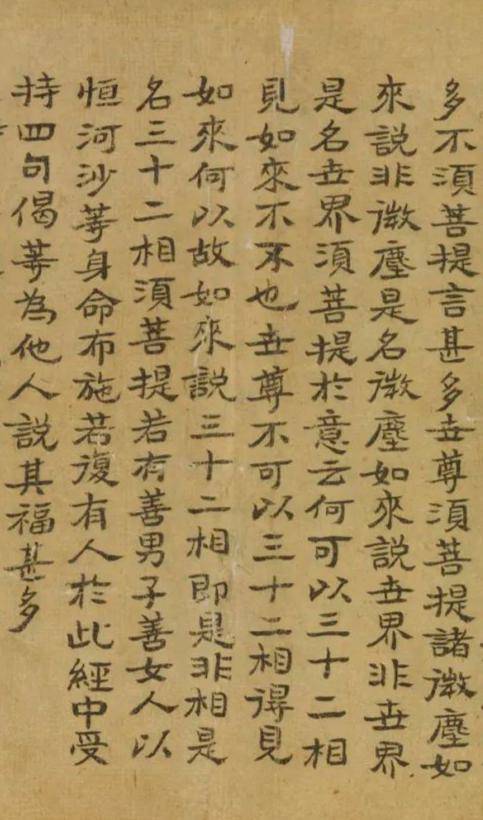 多不須菩提言甚多世尊須菩提諸微塵如
來說非微塵是名微塵如來說世界非世界
是名世界須菩提於意云何可以三十二相
見如來不不也世尊不可以三十二相得見
如來何以故如來說三十二相即是非相是
名三十二相須菩提若有善男子善女人以
恒河沙等身命布施若復有人於此經中受
持四句偈等為他人說其福甚多